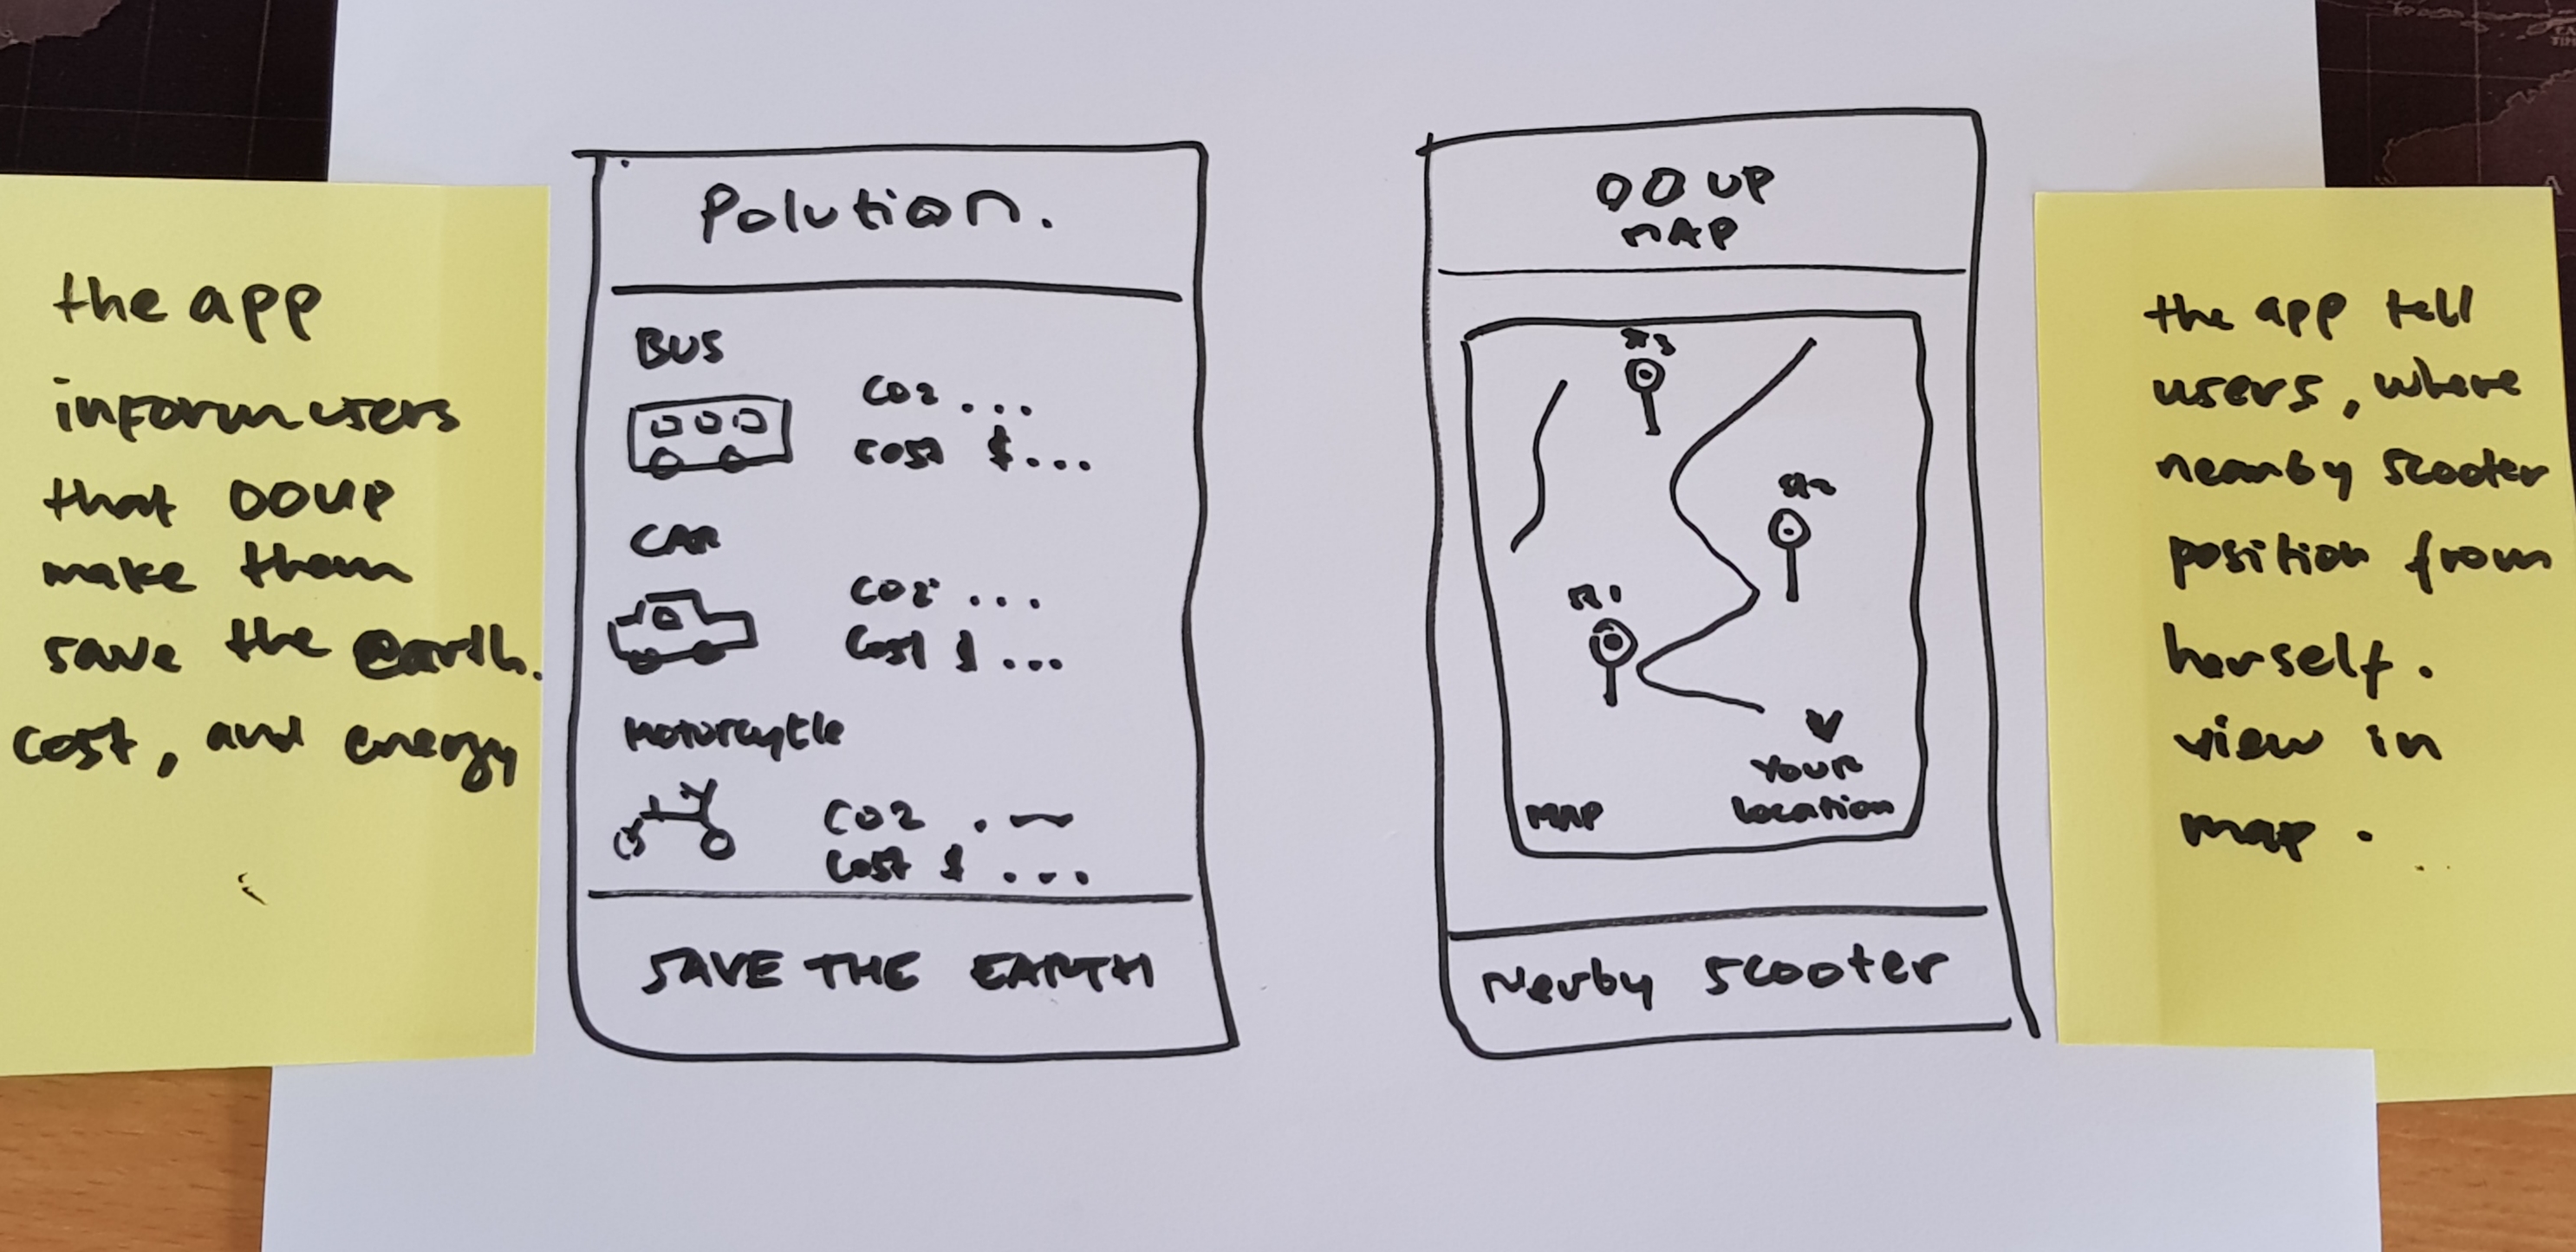 the app
inform users
that OOUP
make them
save the earth.
cost, and energy
Polution.
BUS
CO2 ...
cost $...
CAR
CO2 ...
Cost $ ...
Motorcycle
CO2 .
Cost $ ...
SAVE THE EARTH
OO UP
MAP
YOUR
Location
MAP
Nerby scooter
the app tell
users, where
nearby scooter
position from
herself.
view in
map.